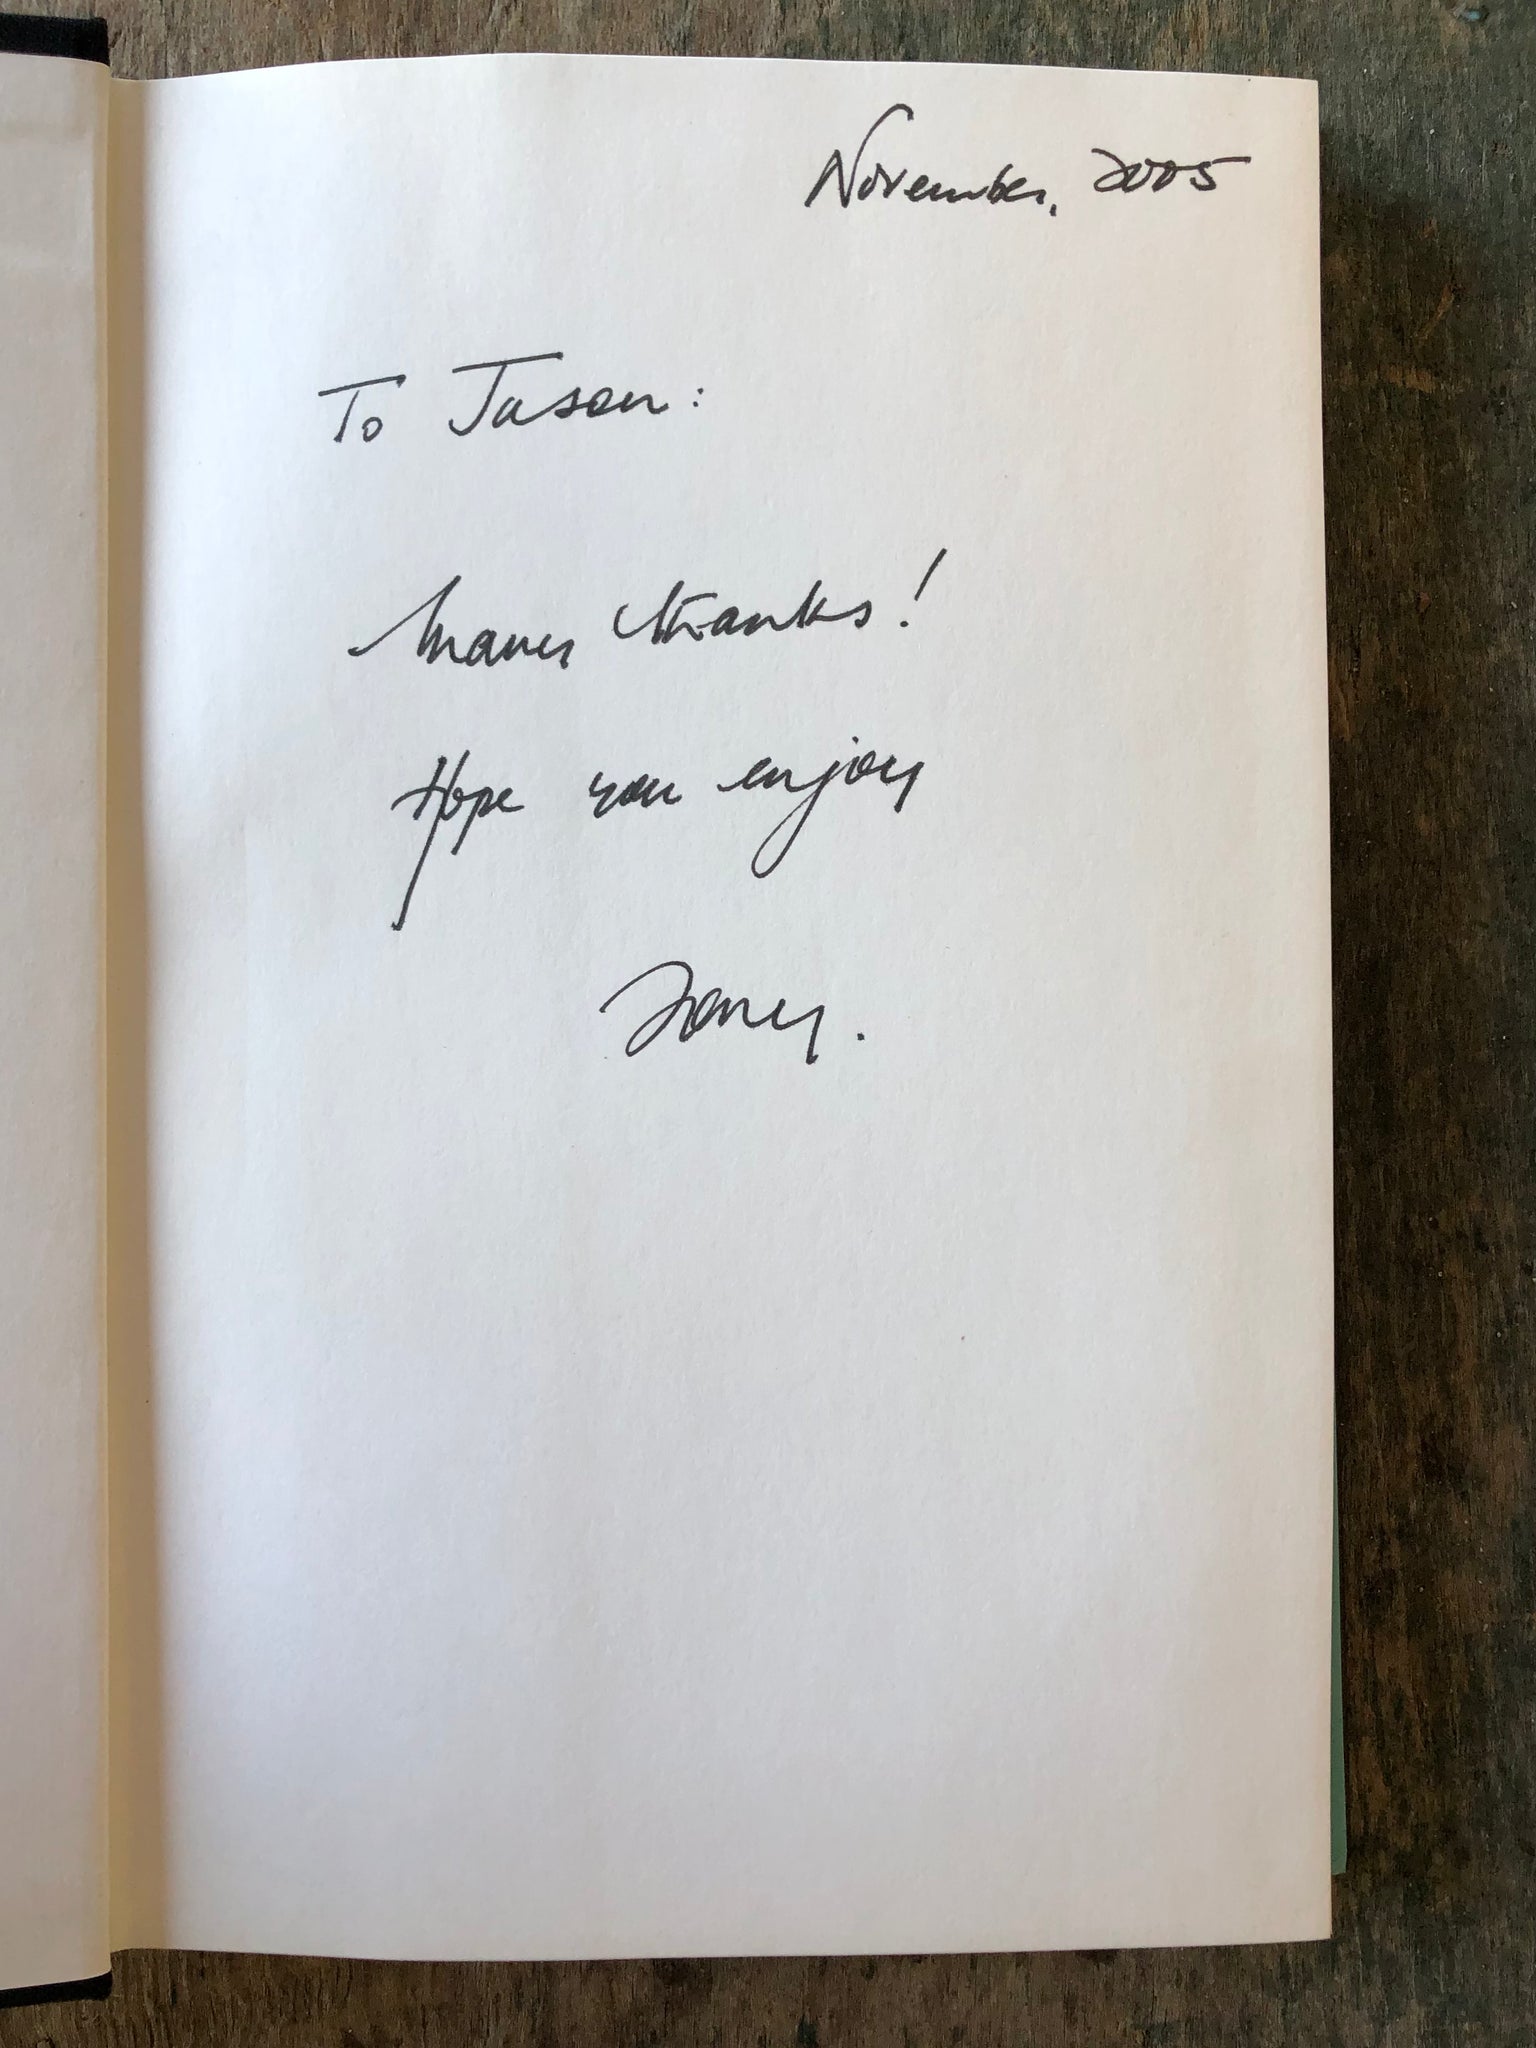 November, 2005
To Jason:
Many thanks!
Hope you enjoy
Tony.